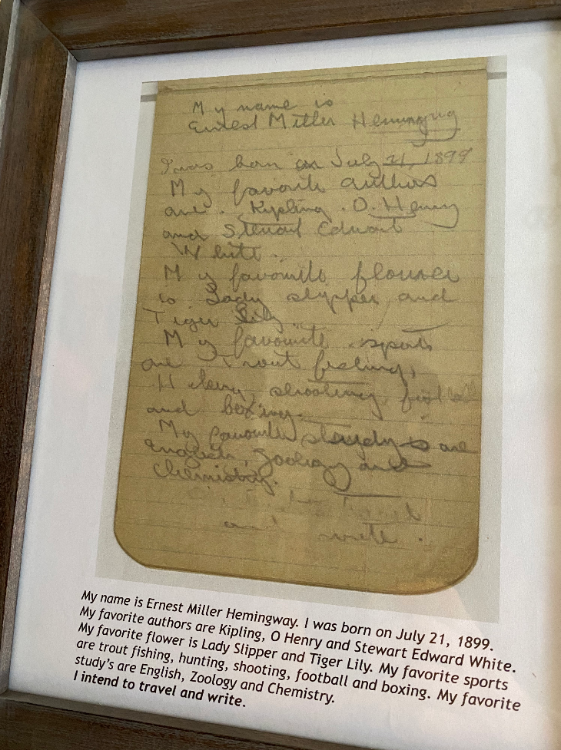 My name is
Ernest Miller Hemingway
I was born on July 21, 1899
My favorite authors
are Kipling, O. Henry
and Steuart Edward
White.
My favorite flower
is Lady slipper and
Tiger Lily
My favorite sports
are Trout fishing,
shooting, football
and boxing.
My favorite studys are
English, Zoology and
Chemistry.
travel
and write.
My name is Ernest Miller Hemingway. I was born on July 21, 1899.
My favorite authors are Kipling, O Henry and Stewart Edward White.
My favorite flower is Lady Slipper and Tiger Lily. My favorite sports
are trout fishing, hunting, shooting, football and boxing. My favorite
study's are English, Zoology and Chemistry.
I intend to travel and write.